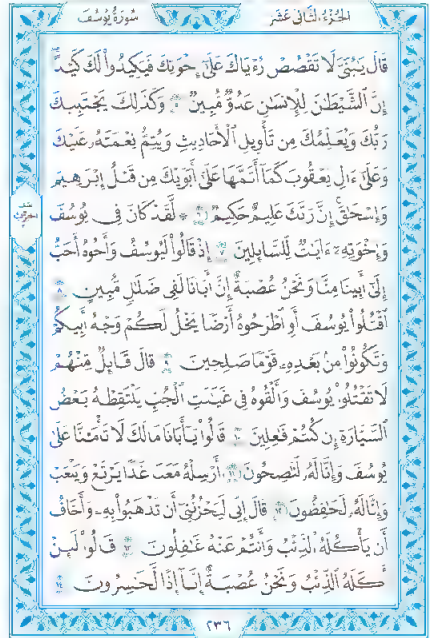 الجُزْءُ الثَّانِي عَشَر
سُورَةُ يُوسُف
قَالَ يَٰبُنَىَّ لَا تَقْصُصْ رُءْيَاكَ عَلَىٰٓ إِخْوَتِكَ فَيَكِيدُوا۟ لَكَ كَيْدًا
إِنَّ ٱلشَّيْطَٰنَ لِلْإِنسَٰنِ عَدُوٌّ مُّبِينٌ ٥ وَكَذَٰلِكَ يَجْتَبِيكَ
رَبُّكَ وَيُعَلِّمُكَ مِن تَأْوِيلِ ٱلْأَحَادِيثِ وَيُتِمُّ نِعْمَتَهُۥ عَلَيْكَ
وَعَلَىٰٓ ءَالِ يَعْقُوبَ كَمَآ أَتَمَّهَا عَلَىٰٓ أَبَوَيْكَ مِن قَبْلُ إِبْرَٰهِيمَ
وَإِسْحَٰقَ إِنَّ رَبَّكَ عَلِيمٌ حَكِيمٌ ٦ ۞ لَّقَدْ كَانَ فِى يُوسُفَ
وَإِخْوَتِهِۦٓ ءَايَٰتٌ لِّلسَّآئِلِينَ ٧ إِذْ قَالُوا۟ لَيُوسُفُ وَأَخُوهُ أَحَبُّ
إِلَىٰٓ أَبِينَا مِنَّا وَنَحْنُ عُصْبَةٌ إِنَّ أَبَانَا لَفِى ضَلَٰلٍ مُّبِينٍ ٨
ٱقْتُلُوا۟ يُوسُفَ أَوِ ٱطْرَحُوهُ أَرْضًا يَخْلُ لَكُمْ وَجْهُ أَبِيكُمْ
وَتَكُونُوا۟ مِنۢ بَعْدِهِۦ قَوْمًا صَٰلِحِينَ ٩ قَالَ قَآئِلٌ مِّنْهُمْ
لَا تَقْتُلُوا۟ يُوسُفَ وَأَلْقُوهُ فِى غَيَٰبَتِ ٱلْجُبِّ يَلْتَقِطْهُ بَعْضُ
ٱلسَّيَّارَةِ إِن كُنتُمْ فَٰعِلِينَ ١٠ قَالُوا۟ يَٰٓأَبَانَا مَا لَكَ لَا تَأْمَ۫نَّا عَلَىٰ
يُوسُفَ وَإِنَّا لَهُۥ لَنَٰصِحُونَ ١١ أَرْسِلْهُ مَعَنَا غَدًا يَرْتَعْ وَيَلْعَبْ
وَإِنَّا لَهُۥ لَحَٰفِظُونَ ١٢ قَالَ إِنِّى لَيَحْزُنُنِىٓ أَن تَذْهَبُوا۟ بِهِۦ وَأَخَافُ
أَن يَأْكُلَهُ ٱلذِّئْبُ وَأَنتُمْ عَنْهُ غَٰفِلُونَ ١٣ قَالُوا۟ لَئِنْ
أَكَلَهُ ٱلذِّئْبُ وَنَحْنُ عُصْبَةٌ إِنَّآ إِذًا لَّخَٰسِرُونَ ١٤
٢٣٦